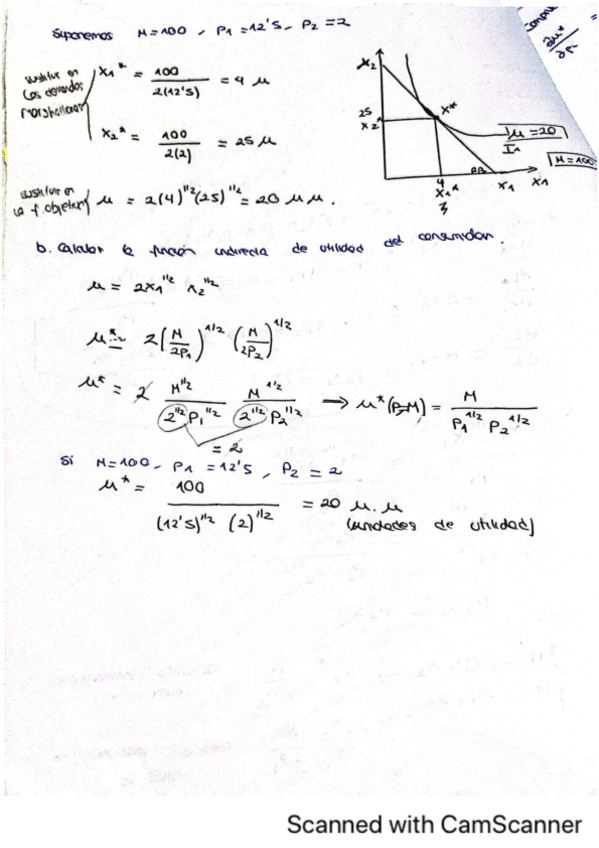 Suponemos M=100, P1=12'5, P2=2
sustituir en las demandas marshallianas
x1* = 100 / 2(12'5) = 4 u
x2* = 100 / 2(2) = 25 u
x2
25
x2*
x*
u=20
I1
M=100
RB
4
x1*
x1
x1
sustituir en la f. objetivo
u = 2(4)^1/2 (25)^1/2 = 20 u u.
b. Calcular la función indirecta de utilidad del consumidor.
u = 2x1^1/2 x2^1/2
u* = 2(M/2P1)^1/2 (M/2P2)^1/2
u* = 2 M^1/2 / 2^1/2 P1^1/2 M^1/2 / 2^1/2 P2^1/2 → u*(P,M) = M / P1^1/2 P2^1/2
= 2
Si M=100, P1=12'5, P2=2
u* = 100 / (12'5)^1/2 (2)^1/2 = 20 u.u
(unidades de utilidad)
Scanned with CamScanner